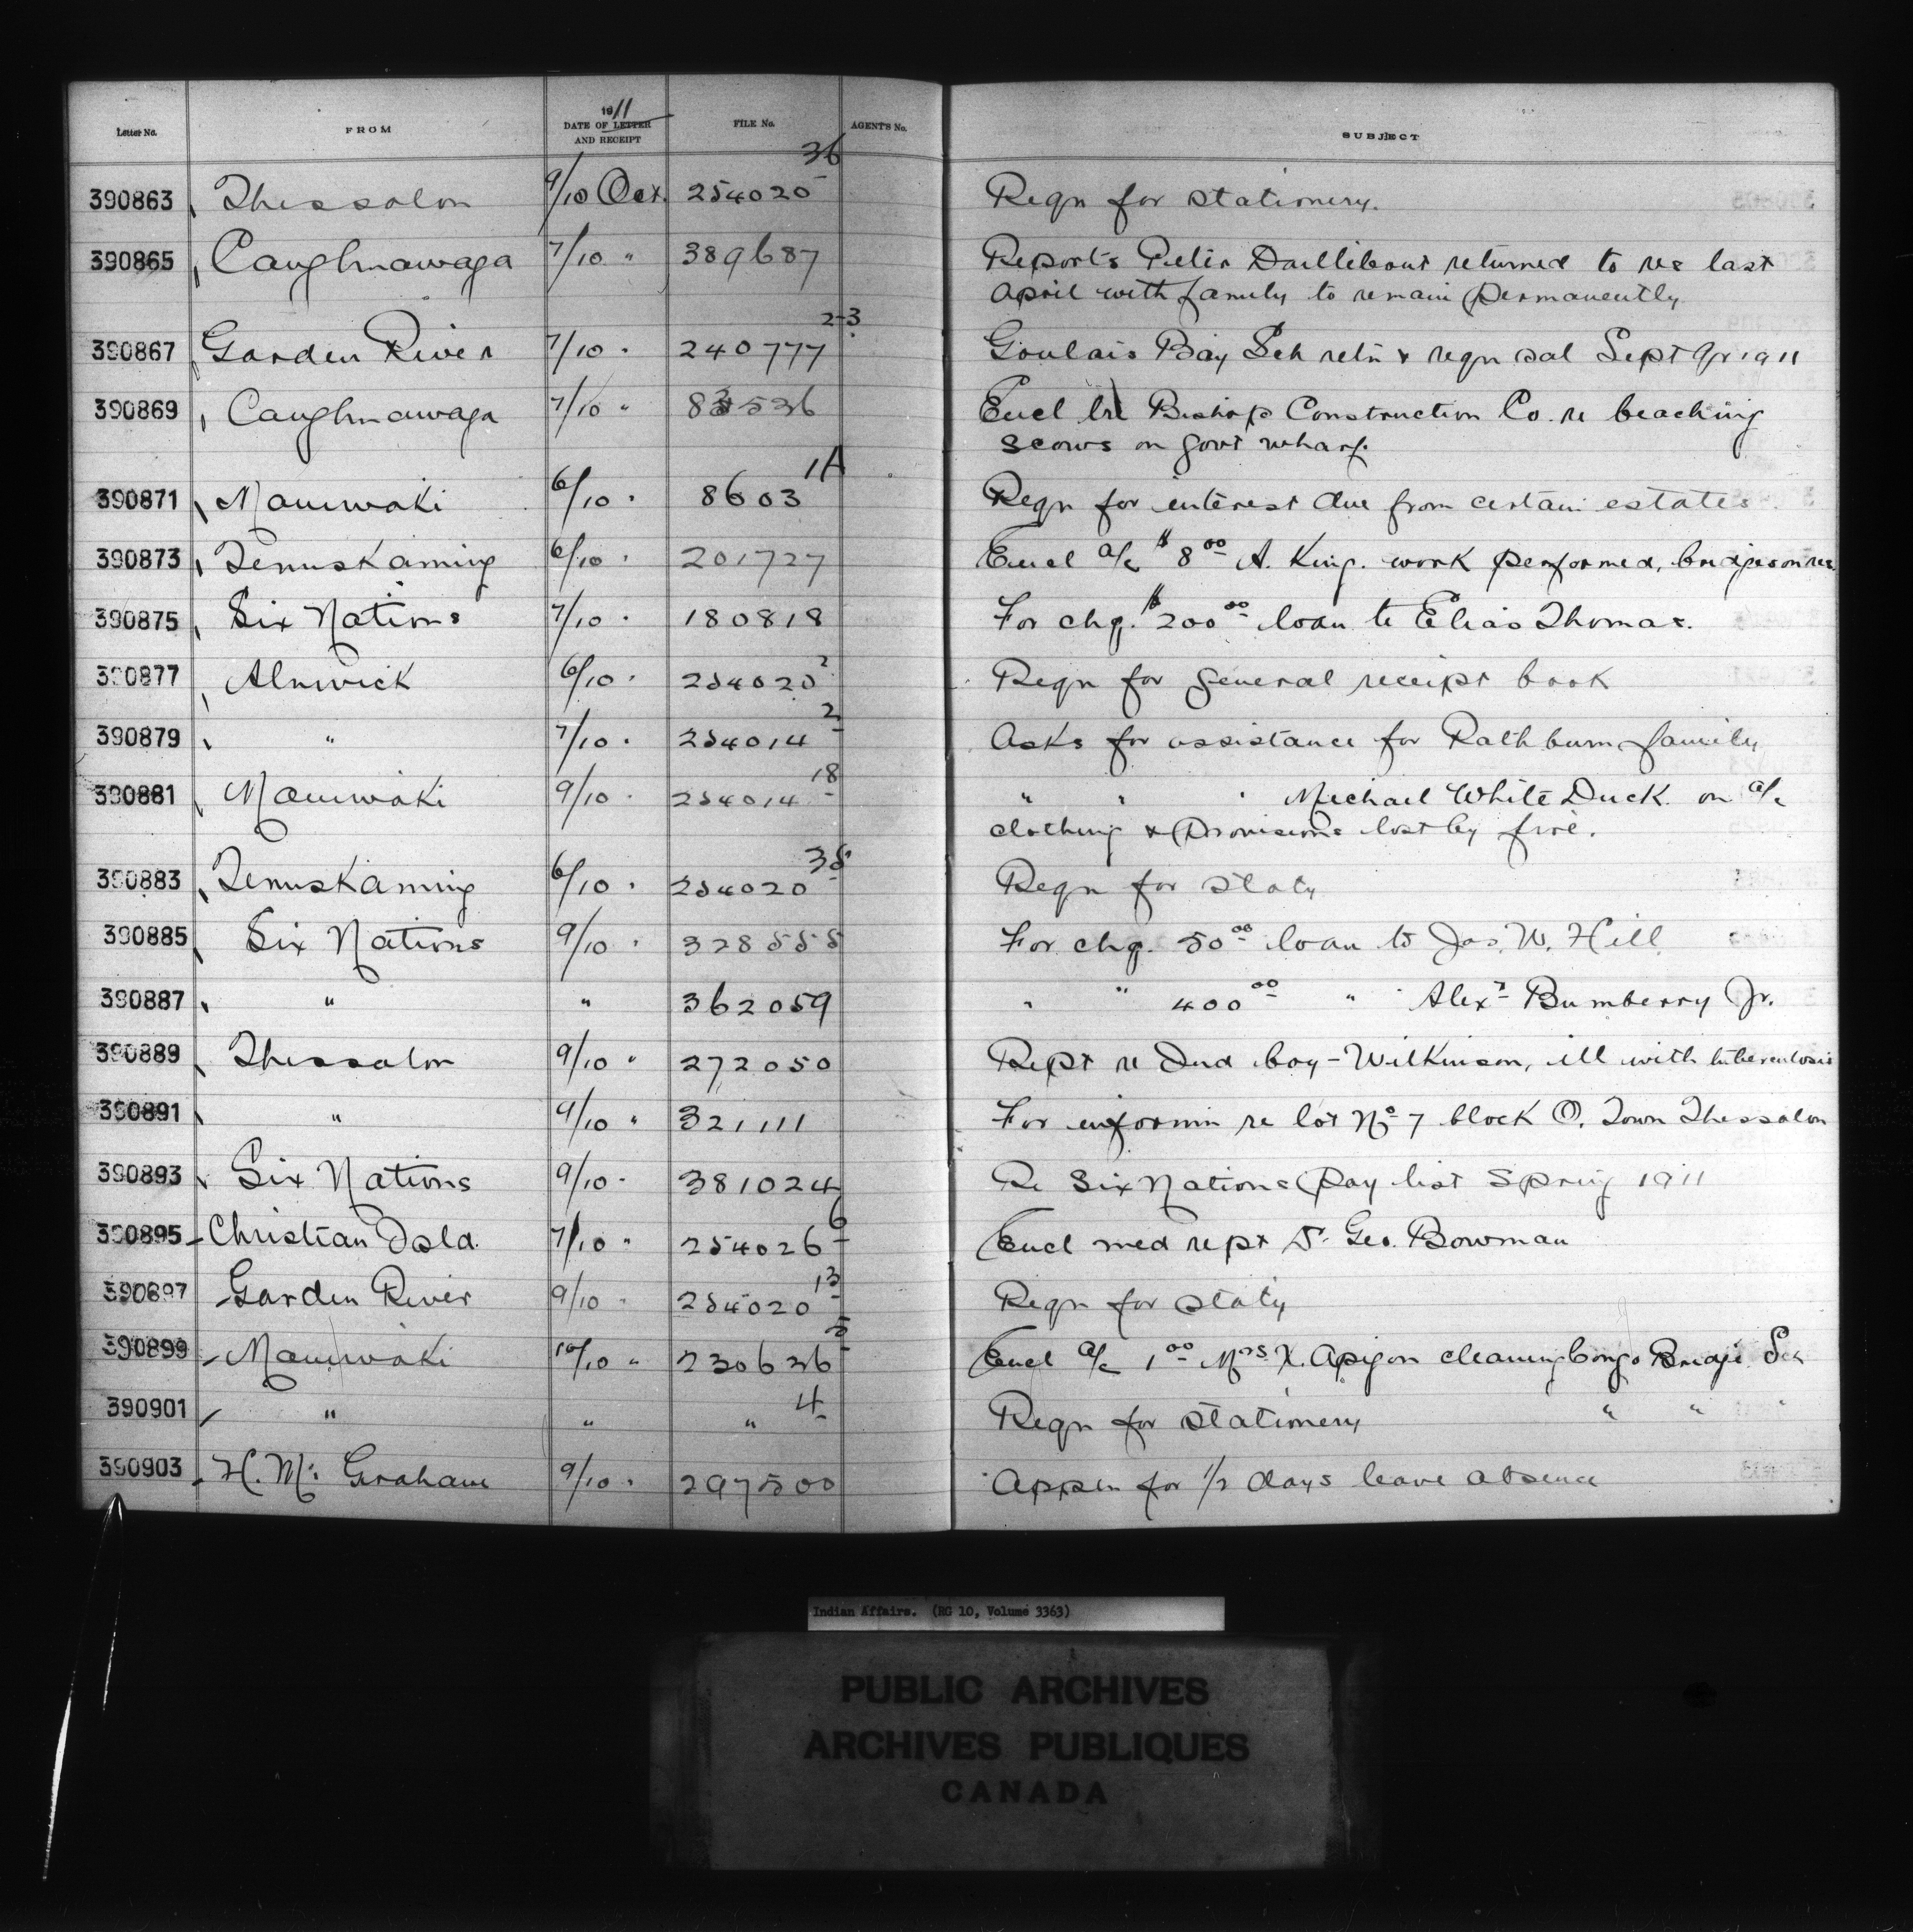 Letter No. FROM 1911 DATE OF LETTER AND RECEIPT FILE No. AGENT'S No. SUBJECT
390863 Thessalon 9/10 Oct. 254020 36 Reqn for stationery.
390865 Caughnawaga 7/10 " 389687 Reports Peter Dailleboust returned to res last
April with family to remain permanently
390867 Garden River 7/10 " 240777 2-3 Goulais Bay Sch retn & reqn sal Sept Qr 1911
390869 Caughnawaga 7/10 " 83536 Encl lre Bishop Construction Co. re beaching
scows on Govt wharf.
390871 Maniwaki 6/10 " 8603 1A Reqn for interest due from certain estates.
390873 Temiskaming 6/10 " 201727 Encl a/c $8.00 A. King. work performed, bridges on res.
390875 Six Nations 7/10 " 180818 For chq. $200.00 loan to Elias Thomas.
390877 Alnwick 6/10 " 254020 2 Reqn for general receipt book
390879 " 7/10 " 254014 2 Asks for assistance for Rathburn family
390881 Maniwaki 9/10 " 254014 18 " " " Michael White Duck on a/c
clothing & provisions lost by fire.
390883 Temiskaming 6/10 " 254020 35 Reqn for staty
390885 Six Nations 9/10 " 328555 For chq. 50.00 loan to Jas. W. Hill
390887 " " 362059 " " 400.00 " Alexr Bumberry Jr.
390889 Thessalon 9/10 " 272050 Rept re Ind boy - Wilkinson, ill with tuberculosis
390891 " 9/10 " 321111 For informn re lot No 7 block O. Town Thessalon
390893 Six Nations 9/10 " 381024 Re Six Nations pay list Spring 1911
390895 Christian Isld. 7/10 " 254026 6 Encl med rept Dr. Geo. Bowman
390897 Garden River 9/10 " 254020 13 Reqn for staty
390899 Maniwaki 10/10 " 230636 5 Encl a/c 1.00 Mrs X. Apigon cleaning Congo Bridge Sch
390901 " " " 4 Reqn for stationery " " "
390903 H. Mc Graham 9/10 " 297500 Appln for 1/2 days leave absence
Indian Affairs. (RG 10, Volume 3363)
PUBLIC ARCHIVES
ARCHIVES PUBLIQUES
CANADA